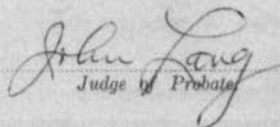 John Lang
Judge of Probate